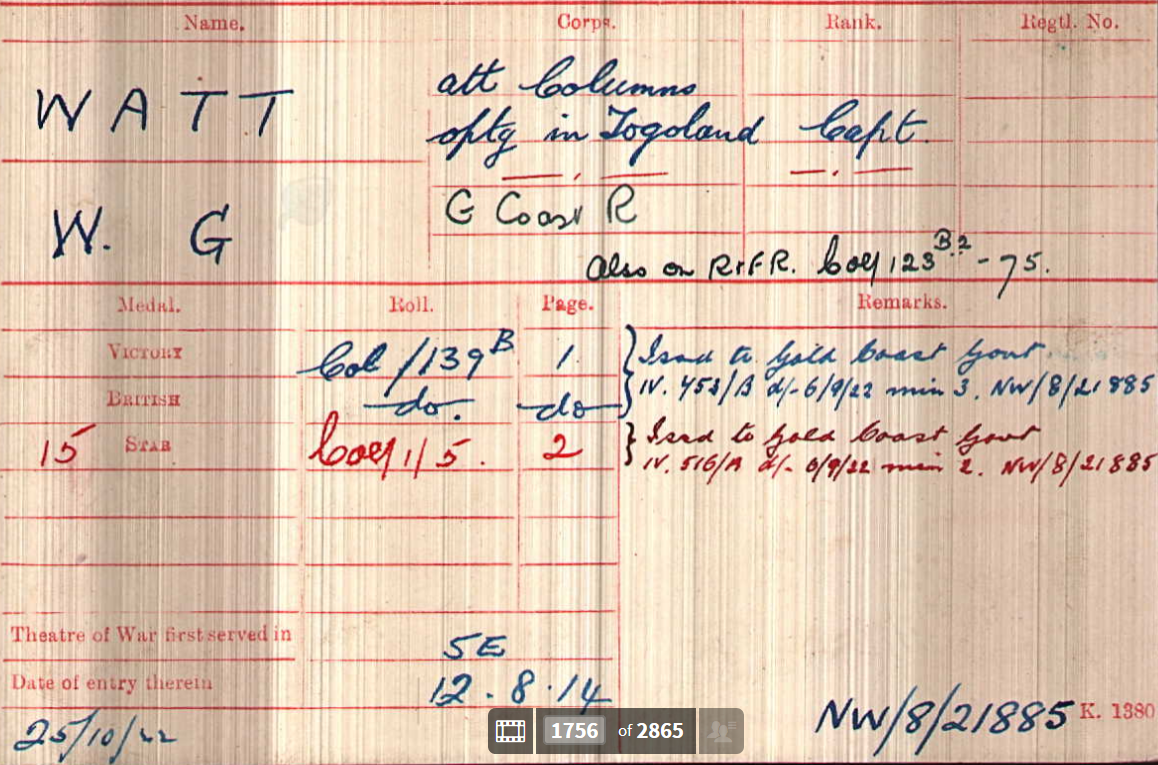 Name. Corps. Rank. Regtl. No.
WATT att Columns
optg in Togoland Capt.
W. G G Coast R
Also on R+F R. Col/123 B.2 - 75.
Medal. Roll. Page. Remarks.
VICTORY Col/139 B 1. } Issd to Gold Coast Govt.
BRITISH do. do IV. 453/B d/- 6/9/22 min 3. NW/8/21885
15 STAR Col/1/5. 2 } Issd to Gold Coast Govt
IV. 516/A d/- 6/9/22 min 2. NW/8/21885
Theatre of War first served in 5E
Date of entry therein 12.8.14
25/10/22 NW/8/21885 K. 1380
1756 of 2865